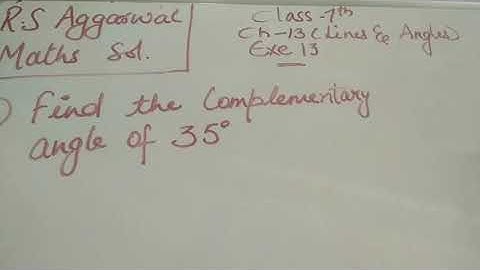 R.S Aggarwal
Maths Sol.
Class-7th
Ch-13 (Lines & Angles)
Exe 13
) Find the Complementary
angle of 35°